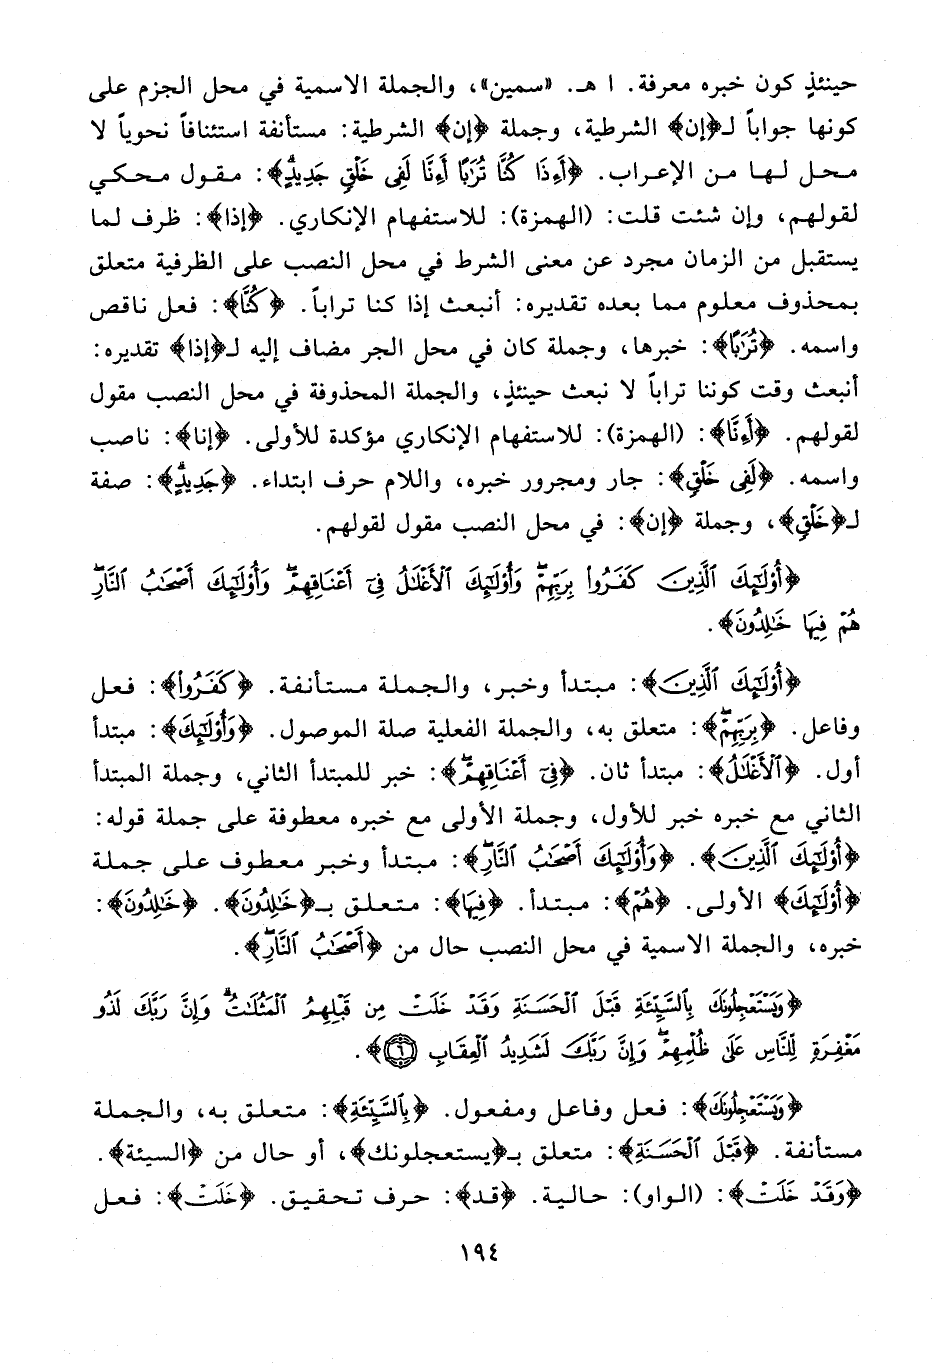 حينئذٍ كون خبره معرفة. ا هـ. «سمين»، والجملة الاسمية في محل الجزم على
كونها جواباً لـ﴿إن﴾ الشرطية، وجملة ﴿إن﴾ الشرطية: مستأنفة استئنافاً نحوياً لا
محل لها من الإعراب. ﴿أَءِذَا كُنَّا تُرَٰبًا أَءِنَّا لَفِى خَلْقٍ جَدِيدٍۗ﴾: مقول محكي
لقولهم، وإن شئت قلت: (الهمزة): للاستفهام الإنكاري. ﴿إذا﴾: ظرف لما
يستقبل من الزمان مجرد عن معنى الشرط في محل النصب على الظرفية متعلق
بمحذوف معلوم مما بعده تقديره: أنبعث إذا كنا تراباً. ﴿كُنَّا﴾: فعل ناقص
واسمه. ﴿تُرَٰبًا﴾: خبرها، وجملة كان في محل الجر مضاف إليه لـ﴿إذا﴾ تقديره:
أنبعث وقت كوننا تراباً لا نبعث حينئذٍ، والجملة المحذوفة في محل النصب مقول
لقولهم. ﴿أَءِنَّا﴾: (الهمزة): للاستفهام الإنكاري مؤكدة للأولى. ﴿إنا﴾: ناصب
واسمه. ﴿لَفِى خَلْقٍ﴾: جار ومجرور خبره، واللام حرف ابتداء. ﴿جَدِيدٍۗ﴾: صفة
لـ﴿خَلْقٍ﴾، وجملة ﴿إن﴾: في محل النصب مقول لقولهم.
﴿أُو۟لَٰٓئِكَ ٱلَّذِينَ كَفَرُوا۟ بِرَبِّهِمْۖ وَأُو۟لَٰٓئِكَ ٱلْأَغْلَٰلُ فِىٓ أَعْنَاقِهِمْۖ وَأُو۟لَٰٓئِكَ أَصْحَٰبُ ٱلنَّارِۖ
هُمْ فِيهَا خَٰلِدُونَ﴾.
﴿أُو۟لَٰٓئِكَ ٱلَّذِينَ﴾: مبتدأ وخبر، والجملة مستأنفة. ﴿كَفَرُوا۟﴾: فعل
وفاعل. ﴿بِرَبِّهِمْۖ﴾: متعلق به، والجملة الفعلية صلة الموصول. ﴿وَأُو۟لَٰٓئِكَ﴾: مبتدأ
أول. ﴿ٱلْأَغْلَٰلُ﴾: مبتدأ ثان. ﴿فِىٓ أَعْنَاقِهِمْۖ﴾: خبر للمبتدأ الثاني، وجملة المبتدأ
الثاني مع خبره خبر للأول، وجملة الأولى مع خبره معطوفة على جملة قوله:
﴿أُو۟لَٰٓئِكَ ٱلَّذِينَ﴾. ﴿وَأُو۟لَٰٓئِكَ أَصْحَٰبُ ٱلنَّارِۖ﴾: مبتدأ وخبر معطوف على جملة
﴿أُو۟لَٰٓئِكَ﴾ الأولى. ﴿هُمْ﴾: مبتدأ. ﴿فِيهَا﴾: متعلق بـ﴿خَٰلِدُونَ﴾. ﴿خَٰلِدُونَ﴾:
خبره، والجملة الاسمية في محل النصب حال من ﴿أَصْحَٰبُ ٱلنَّارِۖ﴾.
﴿وَيَسْتَعْجِلُونَكَ بِٱلسَّيِّئَةِ قَبْلَ ٱلْحَسَنَةِ وَقَدْ خَلَتْ مِن قَبْلِهِمُ ٱلْمَثُلَٰتُۗ وَإِنَّ رَبَّكَ لَذُو
مَغْفِرَةٍ لِّلنَّاسِ عَلَىٰ ظُلْمِهِمْۖ وَإِنَّ رَبَّكَ لَشَدِيدُ ٱلْعِقَابِ ٦﴾.
﴿وَيَسْتَعْجِلُونَكَ﴾: فعل وفاعل ومفعول. ﴿بِٱلسَّيِّئَةِ﴾: متعلق به، والجملة
مستأنفة. ﴿قَبْلَ ٱلْحَسَنَةِ﴾: متعلق بـ﴿يستعجلونك﴾، أو حال من ﴿السيئة﴾.
﴿وَقَدْ خَلَتْ﴾: (الواو): حالية. ﴿قد﴾: حرف تحقيق. ﴿خَلَتْ﴾: فعل
١٩٤